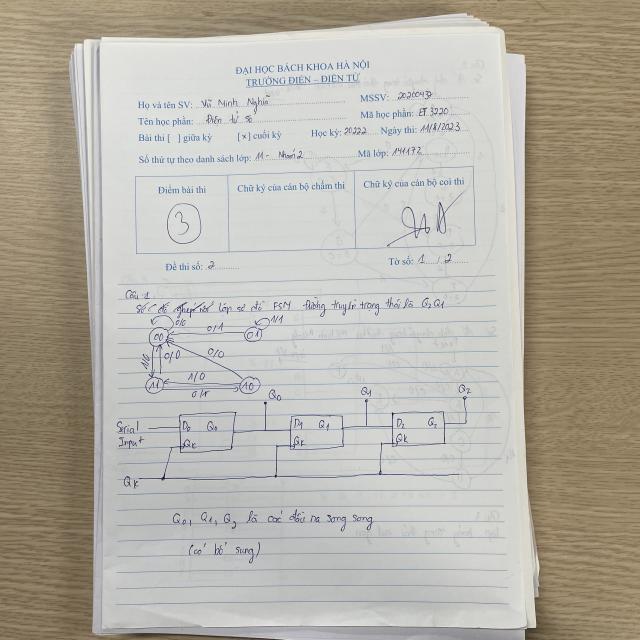 ĐẠI HỌC BÁCH KHOA HÀ NỘI
TRƯỜNG ĐIỆN – ĐIỆN TỬ
Họ và tên SV: Vũ Minh Nghĩa MSSV: 20200432
Tên học phần: Điện tử số Mã học phần: ET3220
Bài thi [ ] giữa kỳ [x] cuối kỳ Học kỳ: 20222 Ngày thi: 11/8/2023
Số thứ tự theo danh sách lớp: 11 - Nhóm 2 Mã lớp: 141172
Điểm bài thi Chữ ký của cán bộ chấm thi Chữ ký của cán bộ coi thi
3
Đề thi số: 2 Tờ số: 1 / 2
Câu 1
lớp sơ đồ FSM trạng thái là Q2Q1
0/0 1/1
00 0/1 01
1/0 0/0 0/0
1/0
11 10
0/1
Q0 Q1 Q2
Serial D0 Q0 D1 Q1 D2 Q2
Input
QK QK QK
QK
Q0, Q1, Q2 là các đầu ra song song
(có bổ sung)